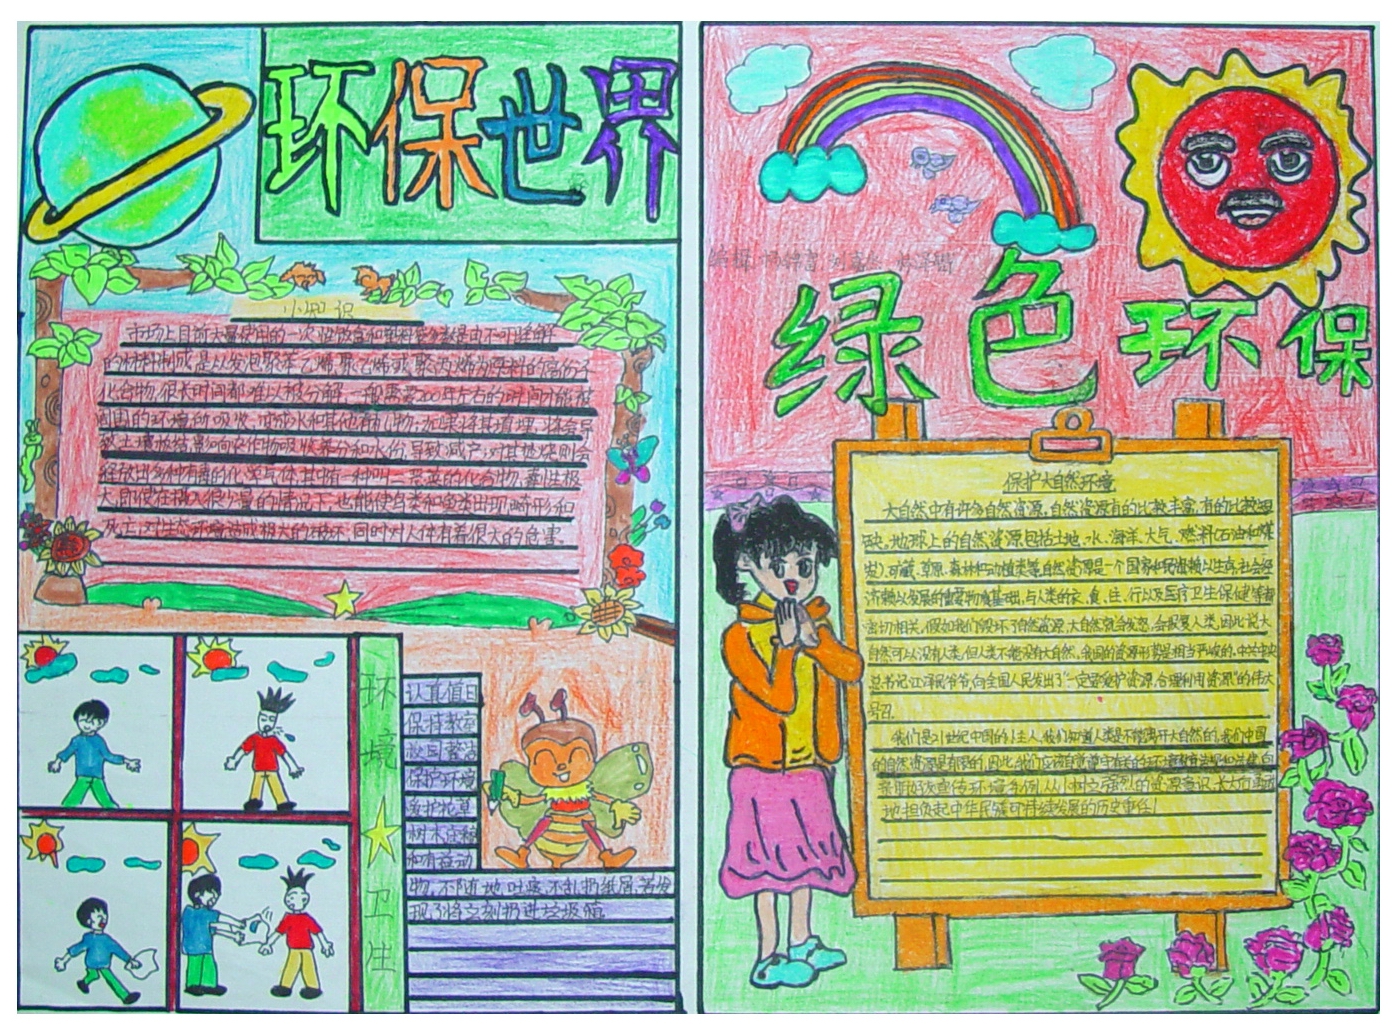 环保世界
小知识
市场上目前大量使用的一次性饭盒和塑料袋多数是由不可降解
的材料制成是以发泡聚苯乙烯,聚乙烯或聚丙烯为原料的高份子
化合物,很长时间都难以被分解,一般需要200年左右的时间才能被
周围的环境所吸收,变成水和其他有机物;如果将其填埋,将会导
致土壤板结影响农作物吸收养分和水份,导致减产;对其焚烧则会
释放出多种有毒的化学气体,其中有一种叫二恶英的化合物,毒性极
大,即使在摄入很少量的情况下,也能使鸟类和鱼类出现畸形和
死亡,对生态环境造成极大的破坏,同时对人体有着很大的危害.
环境卫生
认真值日
保持教室
校园整洁
保护环境
爱护花草
树木庄稼
和有益动
物,不随地吐痰,不乱扔纸屑,若发
现了将立刻扔进垃圾箱
绿色环保
编辑
保护大自然环境
大自然中有许多自然资源,自然资源有的比较丰富,有的比较短
缺。地球上的自然资源包括土地、水、海洋、大气、燃料(石油和煤
炭)、矿藏、草原、森林和动植类等,自然资源是一个国家和民族赖以生存,社会经
济赖以发展的重要物质基础,与人类的衣、食、住、行以及医疗卫生保健等都
密切相关,假如我们毁坏了自然资源,大自然就会发怒,会报复人类,因此说大
自然可以没有人类,但人类不能没有大自然,我国的资源形势是相当严峻的,中共中央
总书记江泽民爷爷,向全国人民发出了“一定要爱护资源,合理利用资源”的伟大
号召.
我们是21世纪中国的小主人,我们知道人类是不能离开大自然的,我们中国
的自然资源是有限的,因此,我们应该自觉遵守有关的环境教育法规和法律,向
亲朋好友宣传环境条例,从小树立强烈的资源意识,长大后勇敢
地担负起中华民族可持续发展的历史责任!